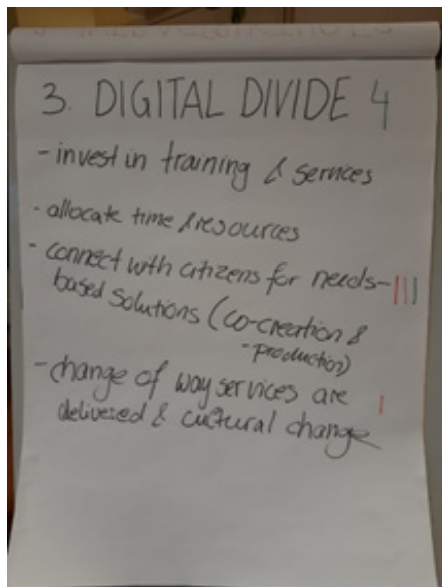 3. DIGITAL DIVIDE 4
- invest in training & services
- allocate time & resources
- connect with citizens for needs-
based solutions (co-creation &
-production)
- change of way services are
delivered & cultural change